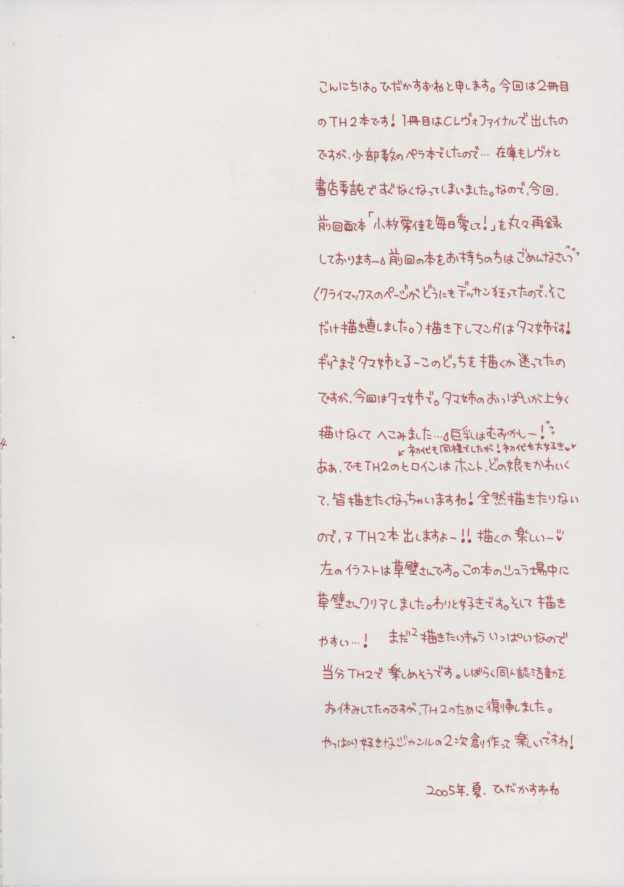 こんにちは。ひだかすずねと申します。今回は2冊目
のTH2本です！1冊目はCレヴォファイナルで出したの
ですが、少部数のペラ本でしたので… 在庫もレヴォと
書店委託ですぐなくなってしまいました。なので、今回、
前回の本「小牧愛佳を毎日愛して！」を丸々再録
しております〜 前回の本をお持ちの方はごめんなさいっ
(クライマックスのページがどうにもデッサン狂ってたので、そこ
だけ描き直しました。)描き下しマンガはタマ姉です！
ギリ2までタマ姉とるーこのどっちを描くか迷ってたの
ですが、今回はタマ姉で。タマ姉のおっぱいが上手く
描けなくてへこみました…巨乳はむずかし〜！
初代も同様でしたが！初代も大好き♥♥
ああ、でもTH2のヒロインはホント、どの娘もかわいく
て、皆描きたくなっちゃいますね！全然描きたりない
ので、又TH2本出しますよ〜!!描くの楽しい〜♥
左のイラストは草壁さんです。この本のシュラ場中に
草壁さんクリアしました。わりと好きです。そして描き
やすい…！ まだ2描きたいキャラいっぱいなので
当分TH2で楽しめそうです。しばらく同人誌活動を
お休みしてたのですが、TH2のために復帰しました。
やっぱり好きなジャンルの2次創作って楽しいですね！
2005年、夏、ひだかすずね